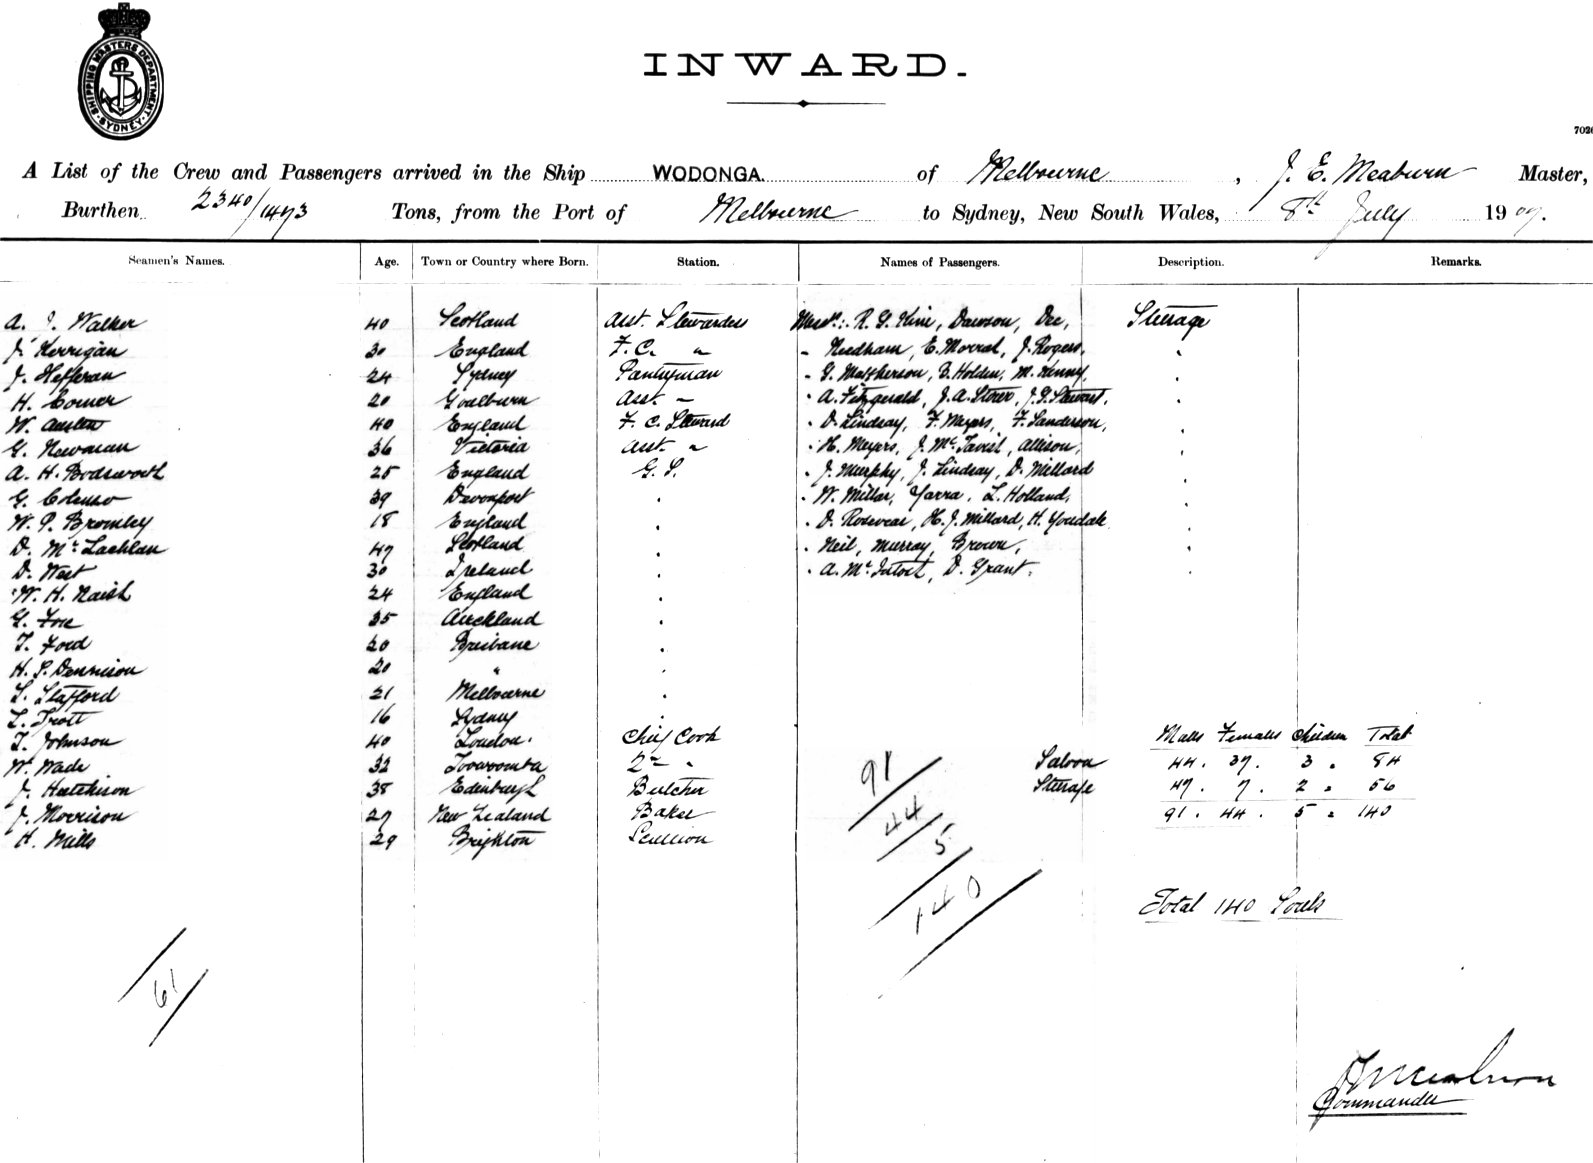 SHIPPING MASTERS DEPARTMENT. SYDNEY
INWARD.
A List of the Crew and Passengers arrived in the Ship WODONGA. of Melbourne, J. E. Meaburn Master,
Burthen 2340/1473 Tons, from the Port of Melbourne to Sydney, New South Wales, 8th July 1909.
Seamen's Names. Age. Town or Country where Born. Station. Names of Passengers. Description. Remarks.
A. J. Walker 40 Scotland Asst. Stewardess Messrs.: R. G. Kine, Dawson, Dee, Steerage
J. Kerrigan 30 England F.C. " " Needham, E. Morrat, J. Rogers,
J. Hefferan 24 Sydney Pantryman " G. Matherson, B. Holden, M. Kenny,
H. Corner 20 Goulburn Asst. " " A. Fitzgerald, J. A. Stower, J. G. Stewart,
W. Austen 40 England F. C. Steward " D. Lindsay, F. Meyers, F. Sanderson,
G. Newman 36 Victoria Asst. " " H. Meyers, J. McTavish, Allison,
A. H. Bodsworth 25 England G. S. " J. Murphy, J. Lindsay, D. Millard
G. Colenso 39 Devonport " " W. Millar, Yarra, L. Holland,
W. P. Bromley 18 England " " D. Rosevear, H. J. Millard, H. Youdale
D. McLachlan 47 Scotland " " Neil, Murray, Brown,
D. West 30 Ireland " " A. McIntosh, D. Grant.
W. H. Naish 24 England "
G. 35 Auckland "
T. Ford 20 Brisbane "
H. S. Dennison 20 " "
S. Stafford 21 Melbourne "
L. Trott 16 Sydney "
T. Johnson 40 London. Chief Cook
W. Wade 32 Toowoomba 2nd "
J. Hutchison 38 Edinburgh Butcher
J. Morrison 27 New Zealand Baker
H. Mills 29 Brighton Scullion
Males Females Children Total
Saloon 44. 37. 3 = 84
Steerage 47. 7. 2 = 56
91. 44. 5 = 140
91/44/5/140
Total 140 Souls
61
J E Meaburn
Commander